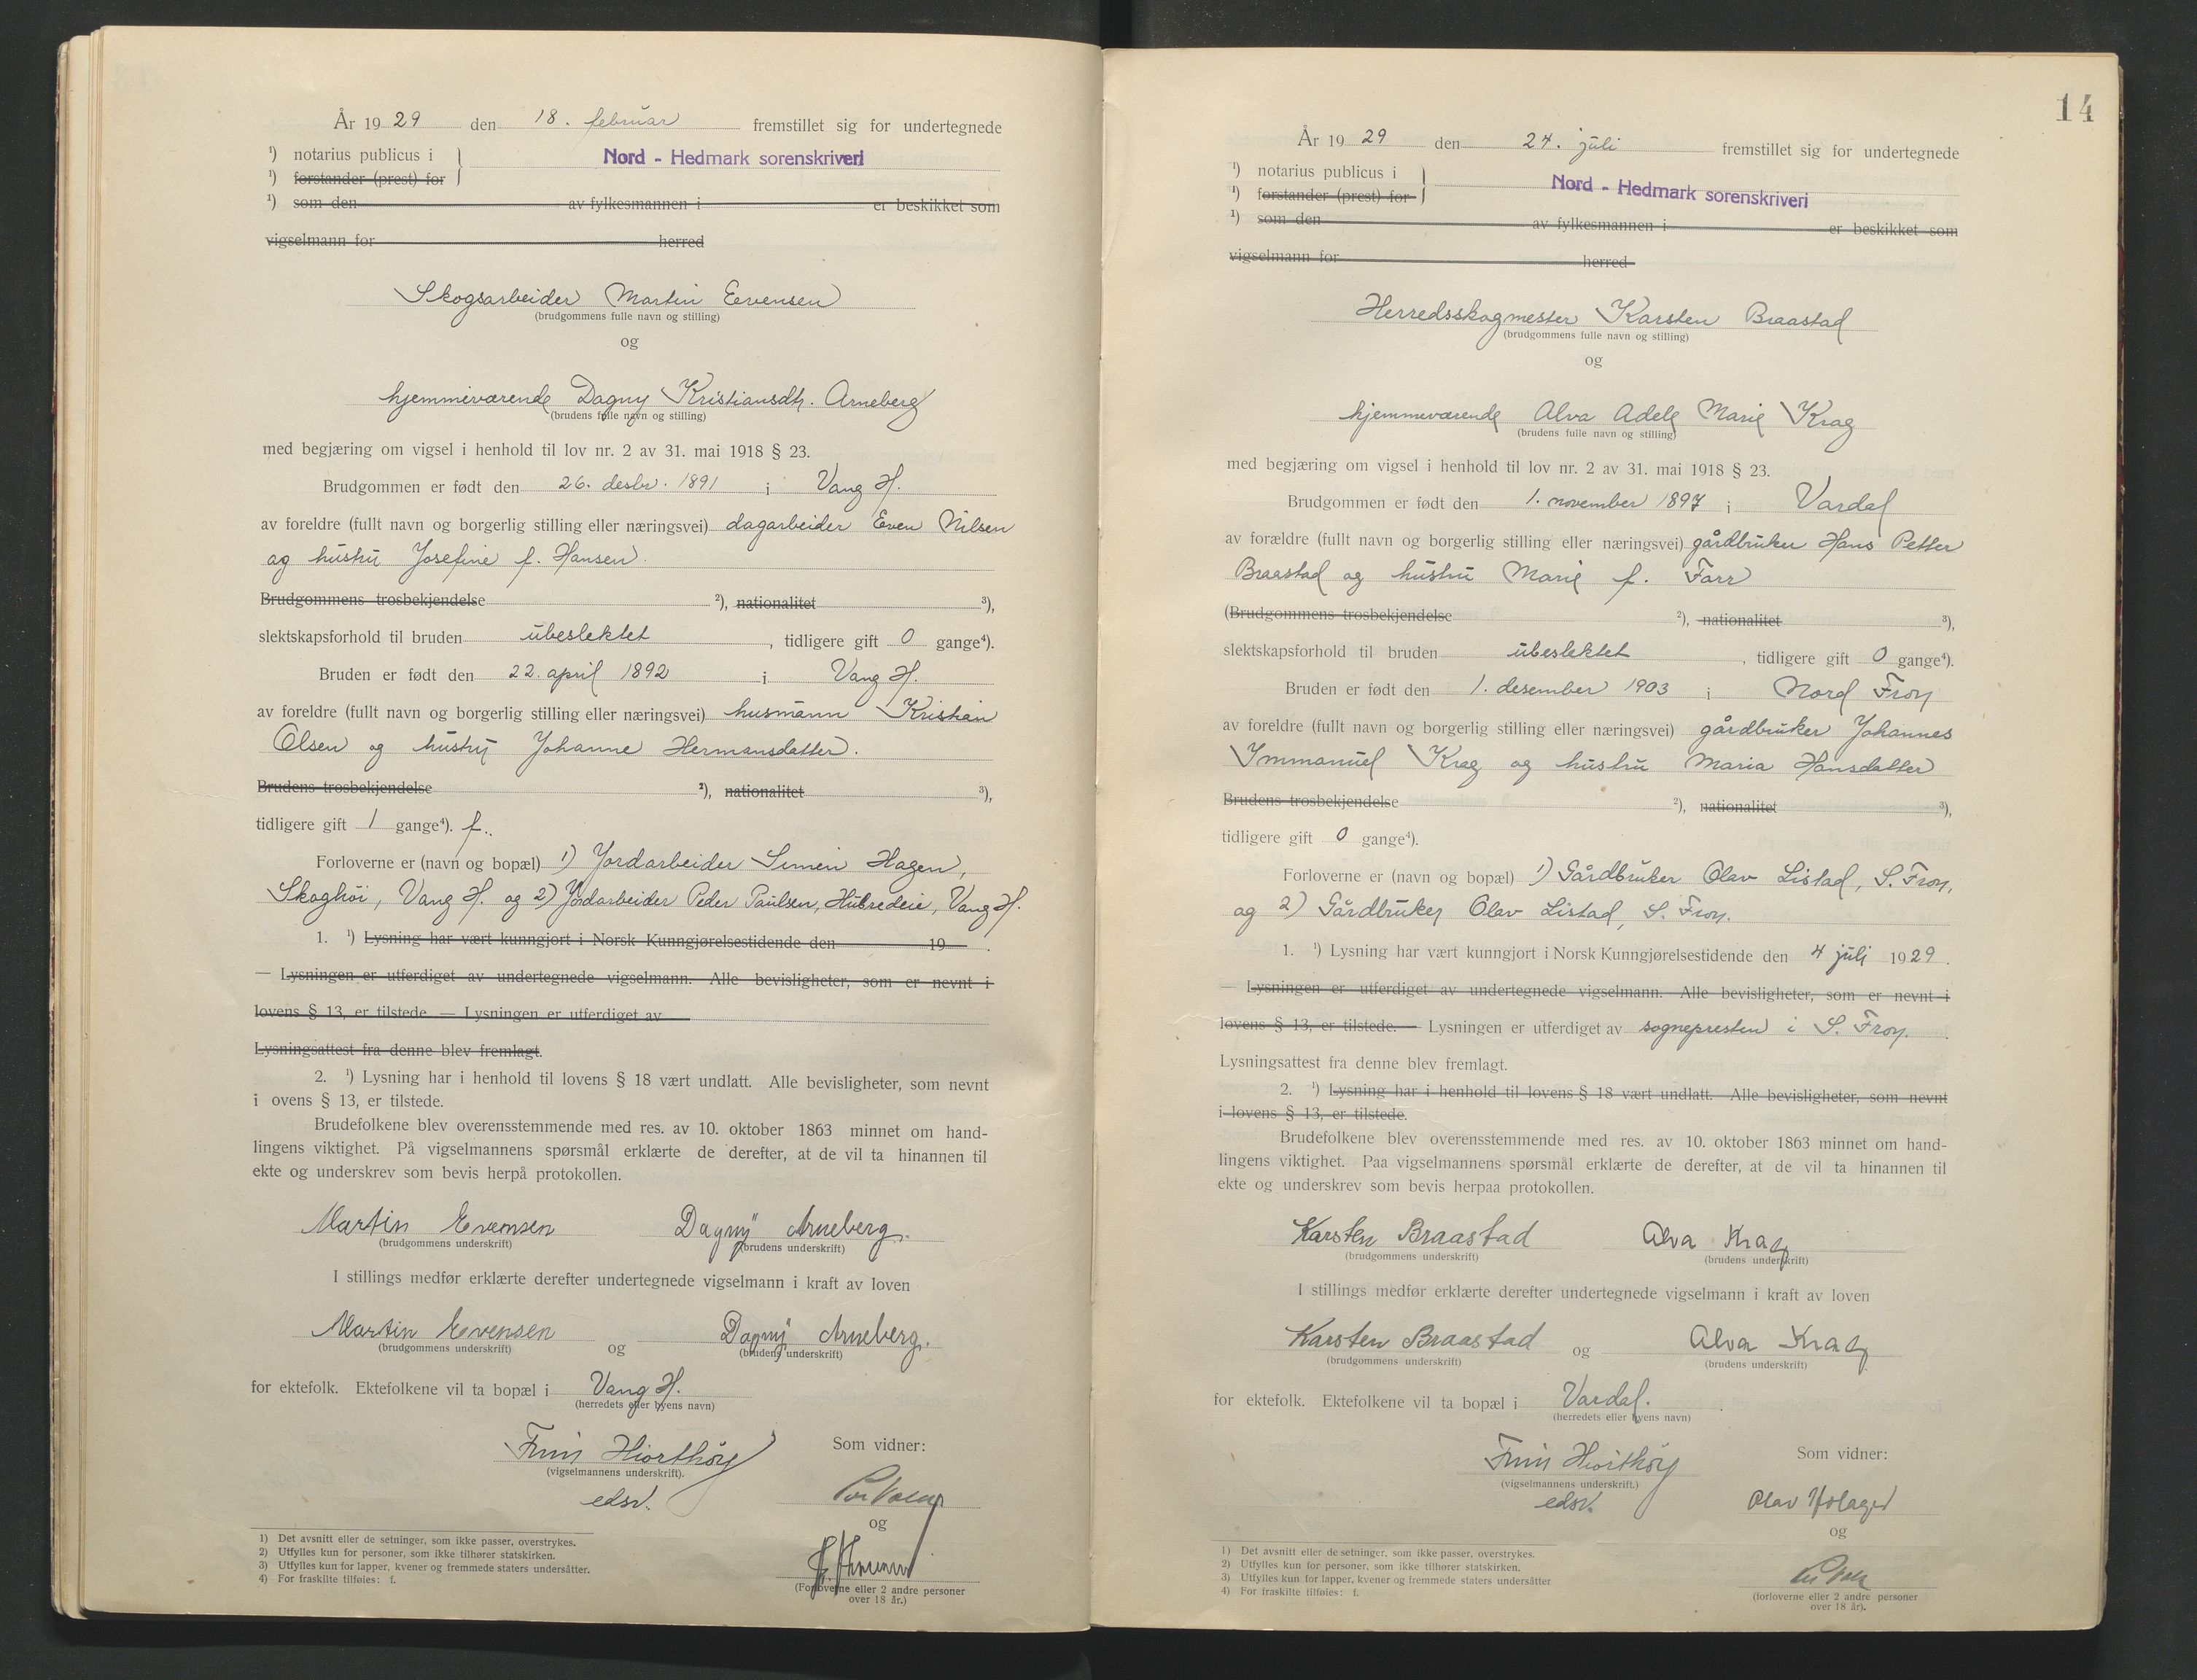 År 1929 den 18. februar fremstillet sig for undertegnede
¹) notarius publicus i } Nord - Hedmark sorenskriveri
¹) forstander (prest) for
¹) som den av fylkesmannen i er beskikket som
vigselmann for herred
Skogsarbeider Martin Evensen
(brudgommens fulle navn og stilling)
og
hjemmeværende Dagny Kristiansdtr. Arneberg
(brudens fulle navn og stilling)
med begjæring om vigsel i henhold til lov nr. 2 av 31. mai 1918 § 23.
Brudgommen er født den 26. desbr. 1891 i Vang H.
av foreldre (fullt navn og borgerlig stilling eller næringsvei) dagarbeider Even Nilsen
og hustru Josefine f. Hansen.
Brudgommens trosbekjendelse ²), nationalitet ³),
slektskapsforhold til bruden ubeslektet, tidligere gift 0 gange⁴).
Bruden er født den 22. april 1892 i Vang H.
av foreldre (fullt navn og borgerlig stilling eller næringsvei) husmann Kristian
Olsen og hustru Johanne Hermansdatter.
Brudens trosbekjendelse ²), nationalitet ³),
tidligere gift 1 gange⁴). f.
Forloverne er (navn og bopæl) 1) Jordarbeider Simen Hagen,
Skoghöi, Vang H. og 2) Jordarbeider Peder Paulsen, Hubredeie, Vang H.
1. ¹) Lysning har vært kunngjort i Norsk Kunngjørelsestidende den 19 .
— Lysningen er utferdiget av undertegnede vigselmann. Alle bevisligheter, som er nevnt i
lovens § 13, er tilstede. — Lysningen er utferdiget av
Lysningsattest fra denne blev fremlagt.
2. ¹) Lysning har i henhold til lovens § 18 vært undlatt. Alle bevisligheter, som nevnt
i ovens § 13, er tilstede.
Brudefolkene blev overensstemmende med res. av 10. oktober 1863 minnet om hand-
lingens viktighet. På vigselmannens spørsmål erklærte de derefter, at de vil ta hinannen til
ekte og underskrev som bevis herpå protokollen.
Martin Evensen Dagny Arneberg.
(brudgommens underskrift) (brudens underskrift)
I stillings medfør erklærte derefter undertegnede vigselmann i kraft av loven
Martin Evensen og Dagny Arneberg.
(brudgommens underskrift) (brudens underskrift)
for ektefolk. Ektefolkene vil ta bopæl i Vang H.
(herredets eller byens navn)
Friis Hiorthöy Som vidner:
(vigselmannens underskrift).
edsv.
og
(Forloverne eller 2 andre personer
over 18 år.)
1) Det avsnitt eller de setninger, som ikke passer, overstrykes.
2) Utfylles kun for personer, som ikke tilhører statskirken.
3) Utfylles kun for lapper, kvener og fremmede staters undersåtter.
4) For fraskilte tilføies: f.
14
År 1929 den 24. juli fremstillet sig for undertegnede
¹) notarius publicus i } Nord - Hedmark sorenskriveri
¹) forstander (prest) for
¹) som den av fylkesmannen i er beskikket som
vigselmann for herred
Herredsskogmester Karsten Braastad
(brudgommens fulle navn og stilling)
og
hjemmeværende Alva Adele Marie Krag
(brudens fulle navn og stilling)
med begjæring om vigsel i henhold til lov nr. 2 av 31. mai 1918 § 23.
Brudgommen er født den 1. november 1897 i Vardal
av forældre (fullt navn og borgerlig stilling eller næringsvei) gårdbruker Hans Petter
Braastad og hustru Marie f. Farr
(Brudgommens trosbekjendelse ²), nationalitet ³),
slektskapsforhold til bruden ubeslektet, tidligere gift 0 gange⁴).
Bruden er født den 1. desember 1903 i Nord Fron
av foreldre (fullt navn og borgerlig stilling eller næringsvei) gårdbruker Johannes
Immanuel Krag og hustru Maria Hansdatter
Brudens trosbekjendelse ²), nationalitet ³),
tidligere gift 0 gange⁴).
Forloverne er (navn og bopæl) 1) Gårdbruker Olav Listad, S. Fron,
og 2) Gårdbruker Olav Listad, S. Fron.
1. ¹) Lysning har vært kunngjort i Norsk Kunngjørelsestidende den 4 juli 1929.
— Lysningen er utferdiget av undertegnede vigselmann. Alle bevisligheter, som er nevnt i
lovens § 13, er tilstede. — Lysningen er utferdiget av sognepresten i S. Fron.
Lysningsattest fra denne blev fremlagt.
2. ¹) Lysning har i henhold til lovens § 18 vært undlatt. Alle bevisligheter, som nevnt
i lovens § 13, er tilstede.
Brudefolkene blev overensstemmende med res. av 10. oktober 1863 minnet om hand-
lingens viktighet. Paa vigselmannens spørsmål erklærte de derefter, at de vil ta hinannen til
ekte og underskrev som bevis herpaa protokollen.
Karsten Braastad Alva Krag
(brudgommens underskrift) (brudens underskrift)
I stillings medfør erklærte derefter undertegnede vigselmann i kraft av loven
Karsten Braastad og Alva Krag
(brudgommens underskrift) (brudens underskrift)
for ektefolk. Ektefolkene vil ta bopæl i Vardal.
(herredets eller byens navn)
Friis Hiorthöy Som vidner:
(vigselmannens underskrift.)
edsv. Olav
og
(forloverne eller 2 andre personer
over 18 år).
1) Det avsnitt eller de setninger, som ikke passer, overstrykes.
2) Utfylles kun for personer, som ikke tilhører statskirken.
3) Utfylles kun for lapper, kvener og fremmede staters undersåtter
4) For fraskilte tilføies: f.